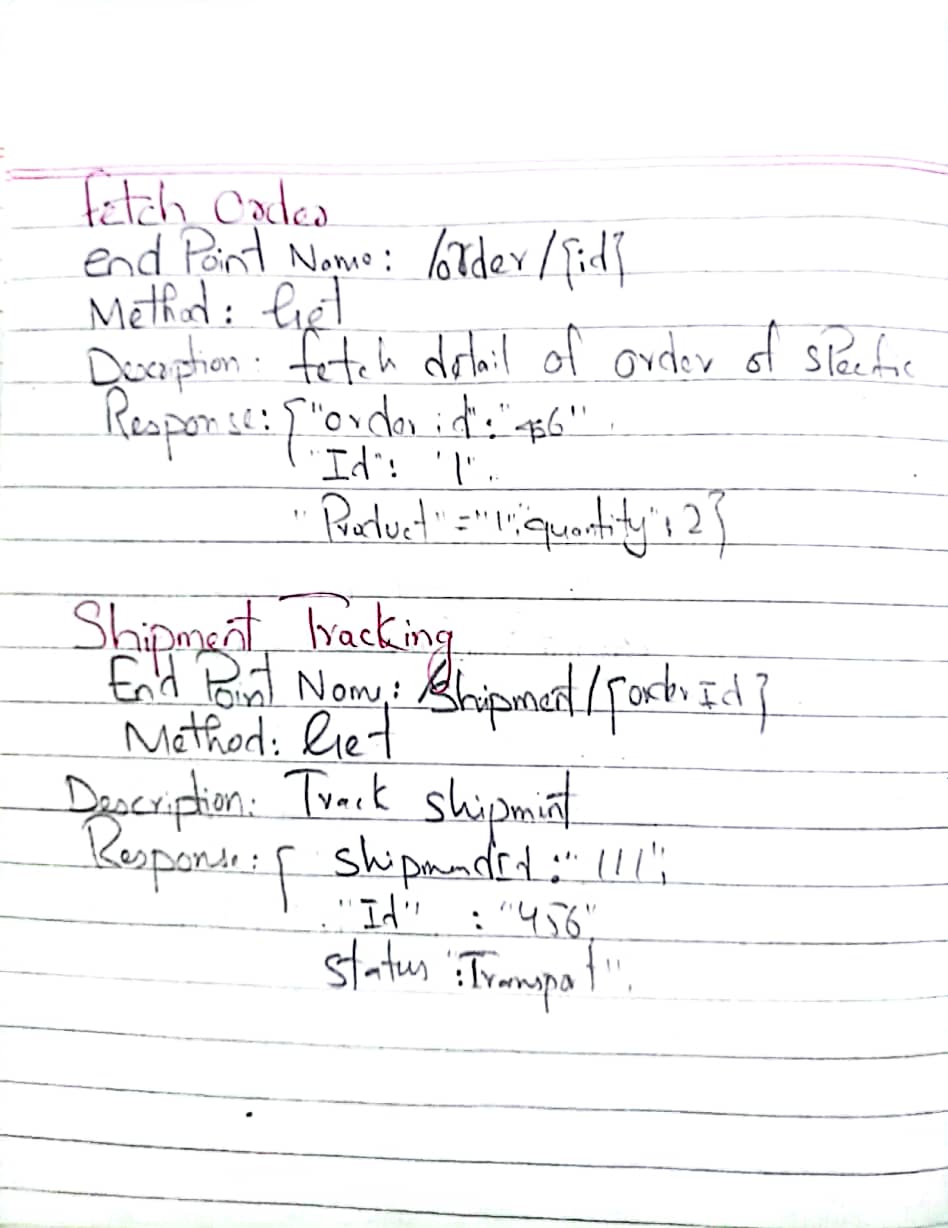 Fetch Order
End Point Name: /order/{id}
Method: Get
Descrption: fetch detail of order of specific
Response: {"order id": "456"
"Id": "1".
"Product" = "1", "quantity": 2}
Shipment Tracking
End Point Nam: /Shipment/{order Id}
Method: Get
Description: Track shipmint
Response: { shipmendId: "111";
"Id" : "456",
Status ":Transpot".